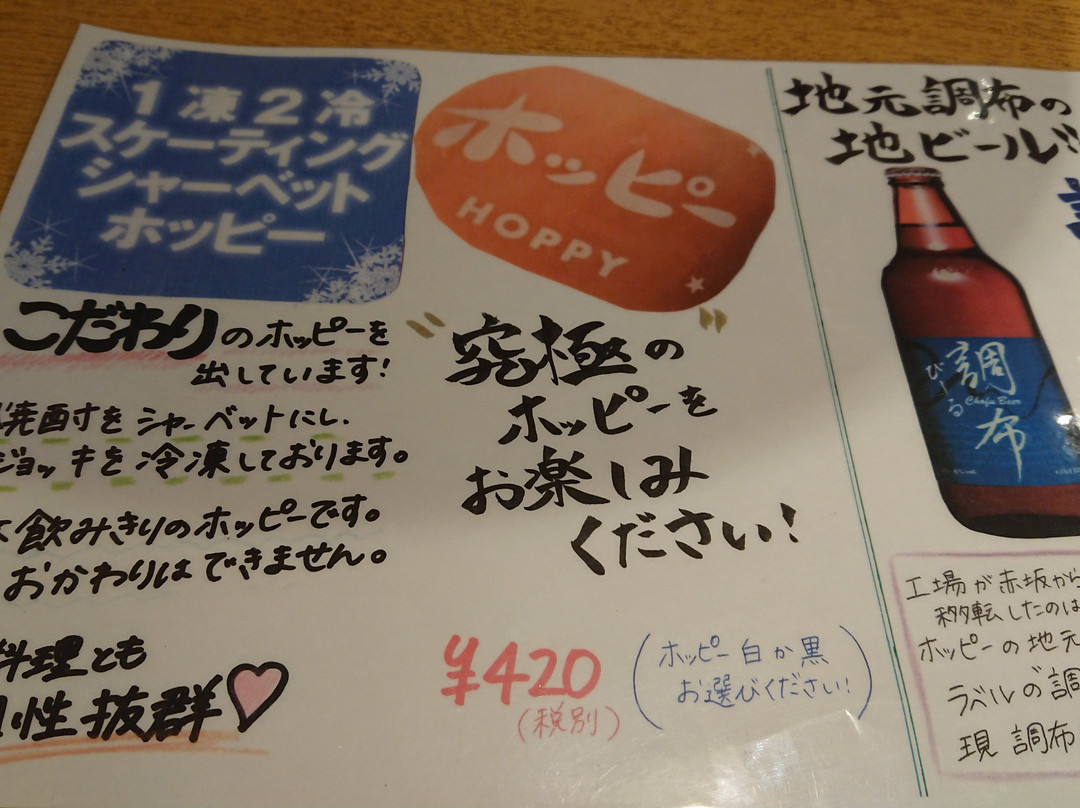 1凍2冷
スケーティング
シャーベット
ホッピー
こだわりのホッピーを
出しています!
焼酎をシャーベットにし、
ジョッキを冷凍しております。
飲みきりのホッピーです。
おかわりはできません。
料理とも
性抜群
ホッピー
HOPPY
"究極の"
ホッピーを
お楽しみ
ください!
¥420
(税別)
(ホッピー白か黒
お選びください!)
地元調布の
地ビール!!
調布
びーる
Chofu Beer
工場が赤坂から
移転したのは
ホッピーの地元
ラベルの調
現調布